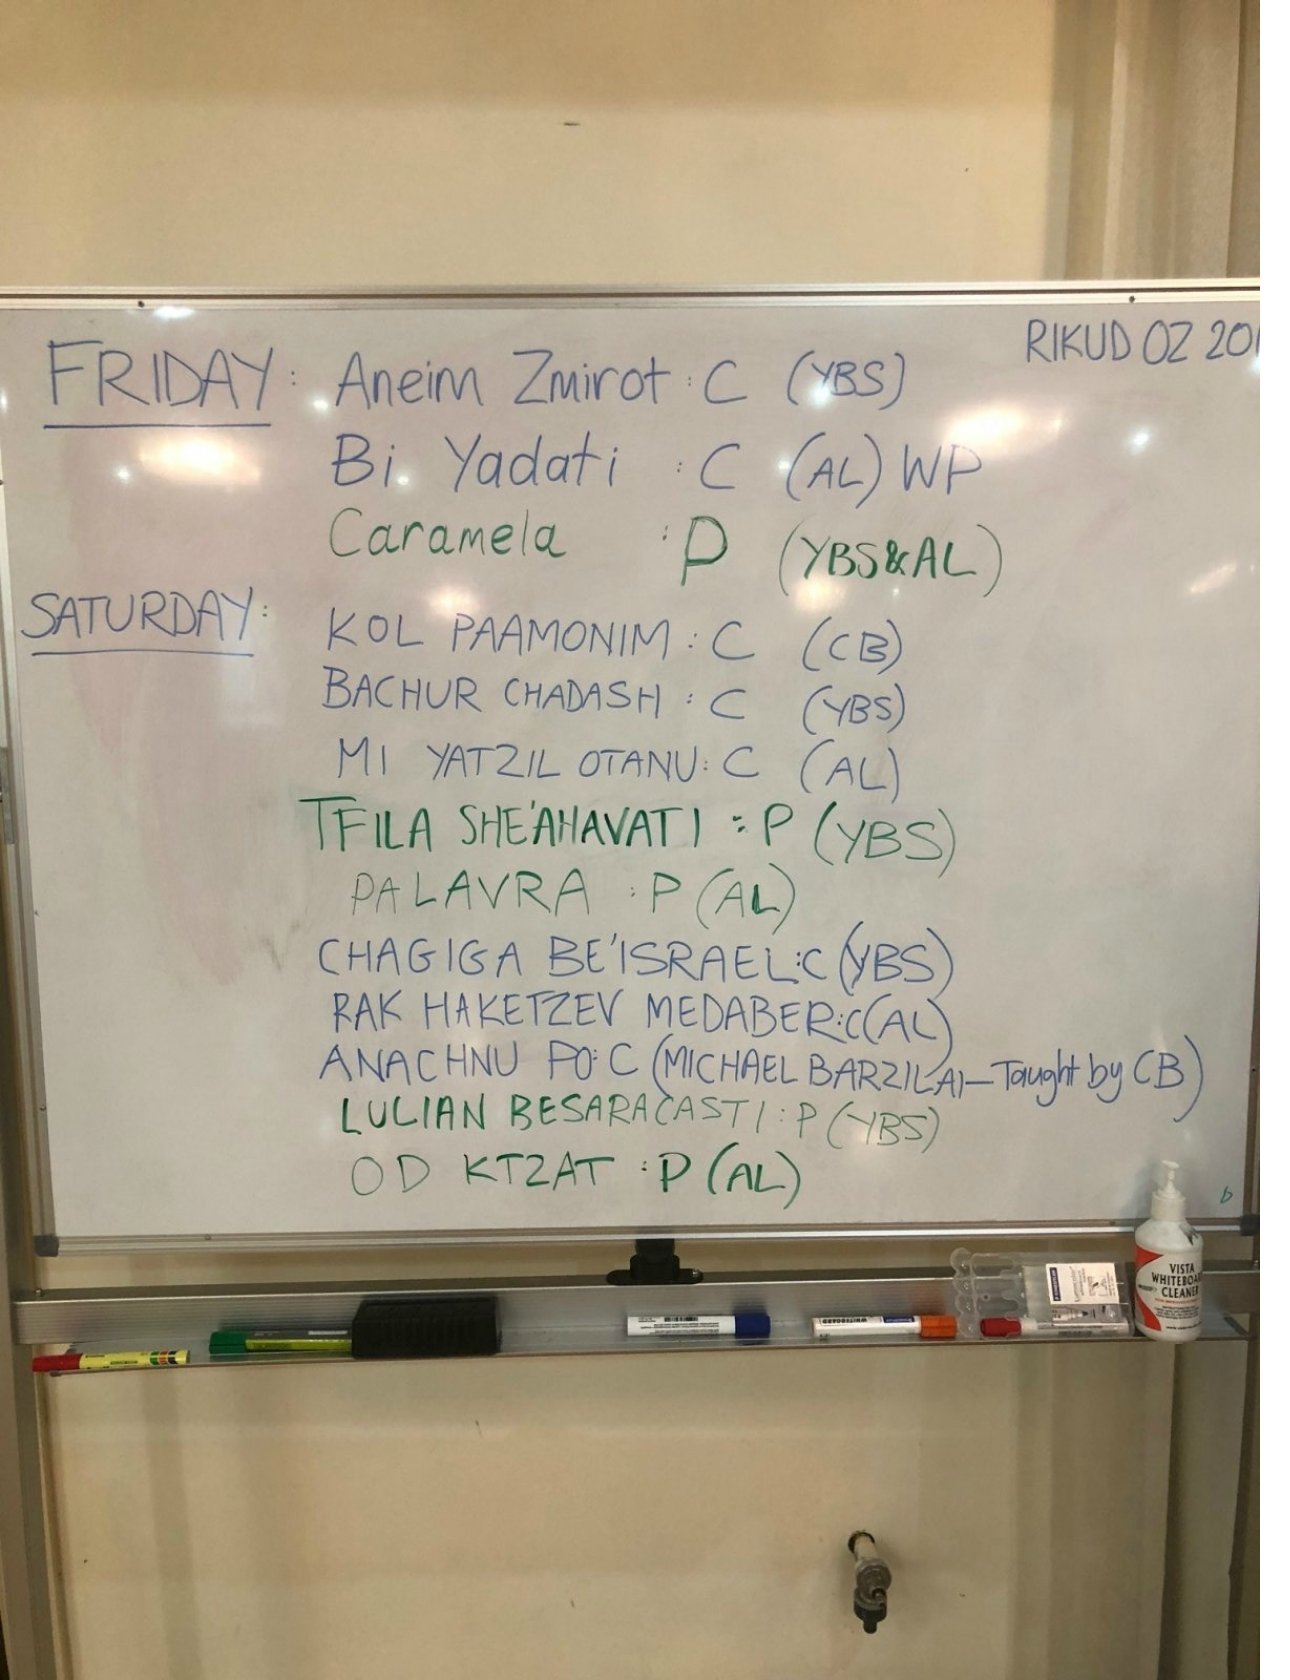 RIKUD OZ 201
FRIDAY: Aneim Zmirot : C (YBS)
Bi Yadati : C (AL) WP
Caramela : P (YBS&AL)
SATURDAY: KOL PAAMONIM : C (CB)
BACHUR CHADASH : C (YBS)
MI YATZIL OTANU : C (AL)
TFILA SHE'AHAVATI : P (YBS)
PALAVRA : P (AL)
CHAGIGA BE'ISRAEL : C (YBS)
RAK HAKETZEV MEDABER : C (AL)
ANACHNU PO : C (MICHAEL BARZILAI - Taught by CB)
LULIAN BESARACASTI : P (YBS)
OD KTZAT : P (AL)
VISTA
WHITEBOARD
CLEANER